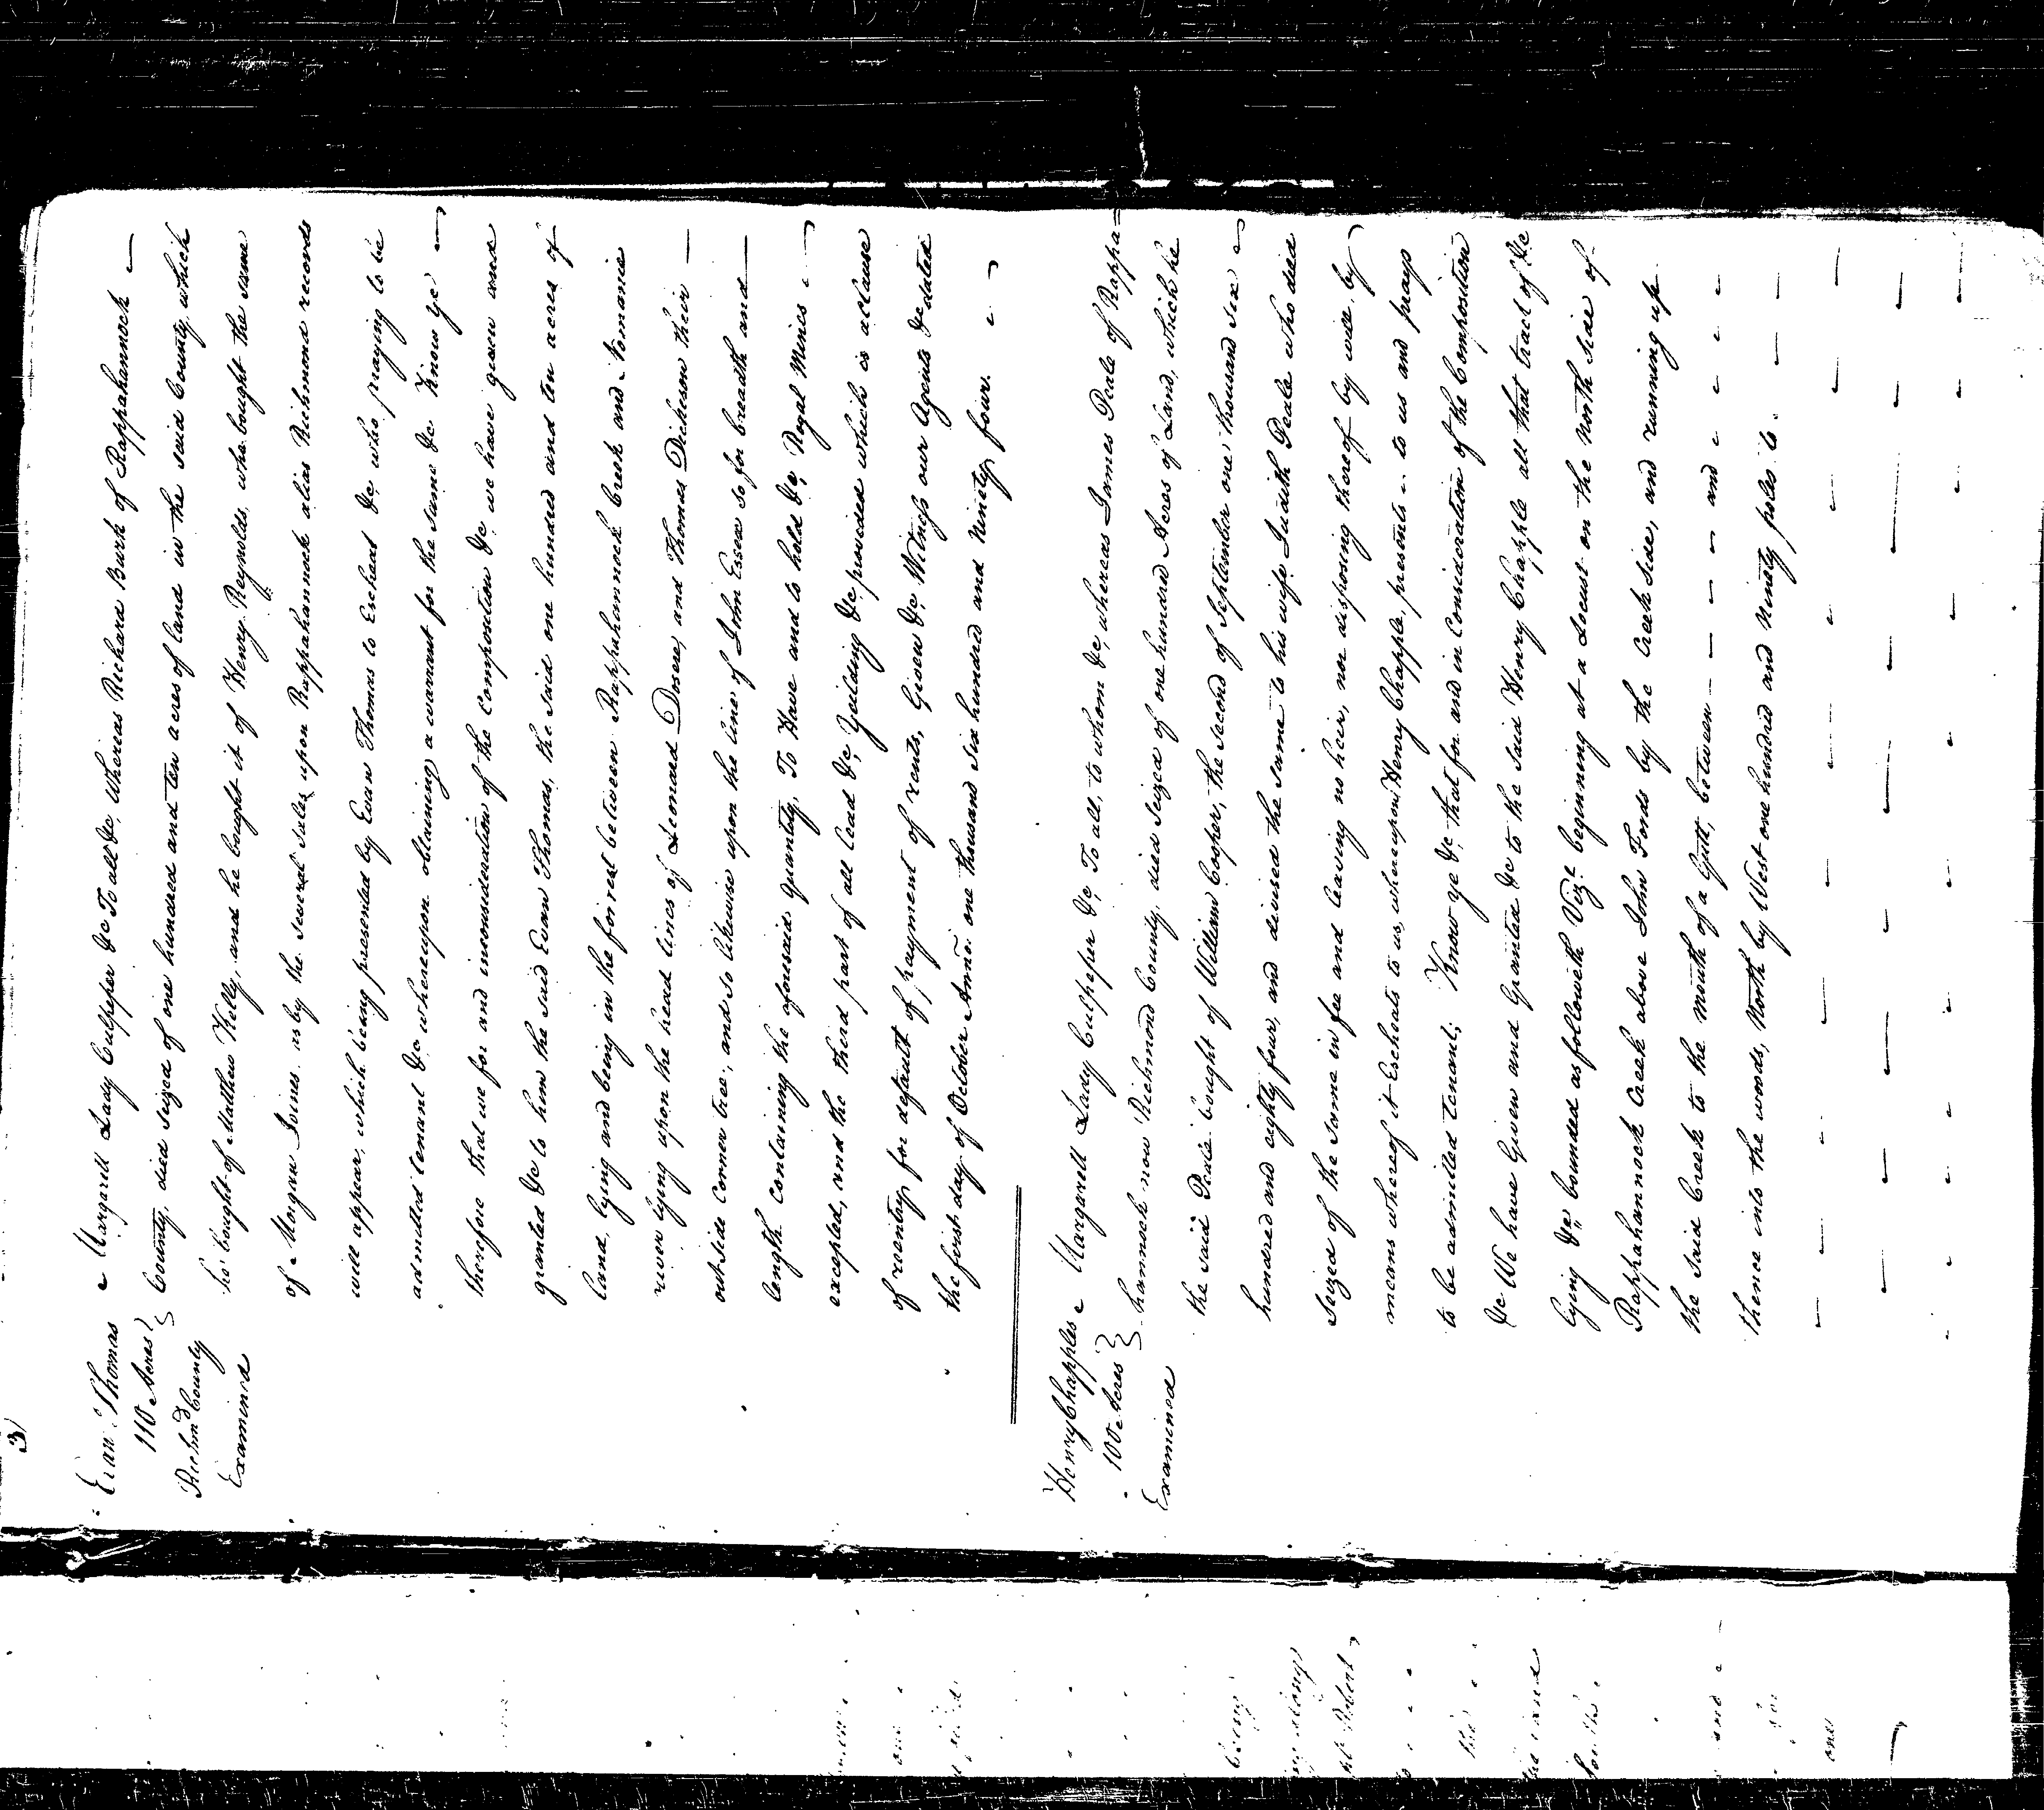 3
Evan Thomas
110 Acres
Richmd County
Examined
Margarett Lady Culpeper &c To all &c, Whereas Richard Burk of Rappahannock
County, died seized of one hundred and ten acres of land in the said County, which
he bought of Matthew Kelly, and he bought it of Henry Reynolds, who bought the same
of Morgan Joines as by the several sales upon Rappahannock alias Richmond records
will appear, which being presented by Evan Thomas to Escheat &c, who praying to be
admitted tenant &c whereupon obtaining a warrant for the same &c Know ye
therefore that we for and inconsideration of the Composition &c we have given and
granted &c to him the said Evan Thomas, the said one hundred and ten acres of
land, lying and being in the forrest between Rappahannock Creek and Nomanie
river lying upon the head lines of Leonard Dosere, and Thomas Dickeson their
outside corner tree, and so likewise upon the line of John Essex so for breadth and
length containing the aforesaid quantity, To Have and to hold &c, Royal Mines
excepted, and the third part of all Lead &c, Yeilding &c provided which is a clause
of reentry for default of payment of rents, Given &c, Witness our Agents &c dated
the first day of October Anno. one thousand six hundred and Ninety four.
Henry Chapples
100 Acres
Examined
Margarett Lady Culpeper &c, To all, to whom &c, whereas James Peale of Rappa=
hannock now Richmond County, died seized of one hundred Acres of Land, which he
the said Peale bought of William Cooper, the second of September one thousand six
hundred and eighty four, and devised the same to his wife Judith Peale who died
seized of the same in fee and leaving no heir, nor disposing thereof by will, by
means whereof it Escheats to us, whereupon Henry Chapple, presents to us and prays
to be admitted tenant; Know ye &c, that for and in Consideration of the Composition
&c We have Given and Granted &c to the said Henry Chapple all that tract of &c
lying &c" bounded as followeth Vizt beginning at a Locust on the North Side of
Rappahannock Creek above John Fords by the Creek side, and running up
the said Creek to the mouth of a Gutt, between — — and
thence into the woods, North by West one hundred and Ninety poles to
being
and
ones